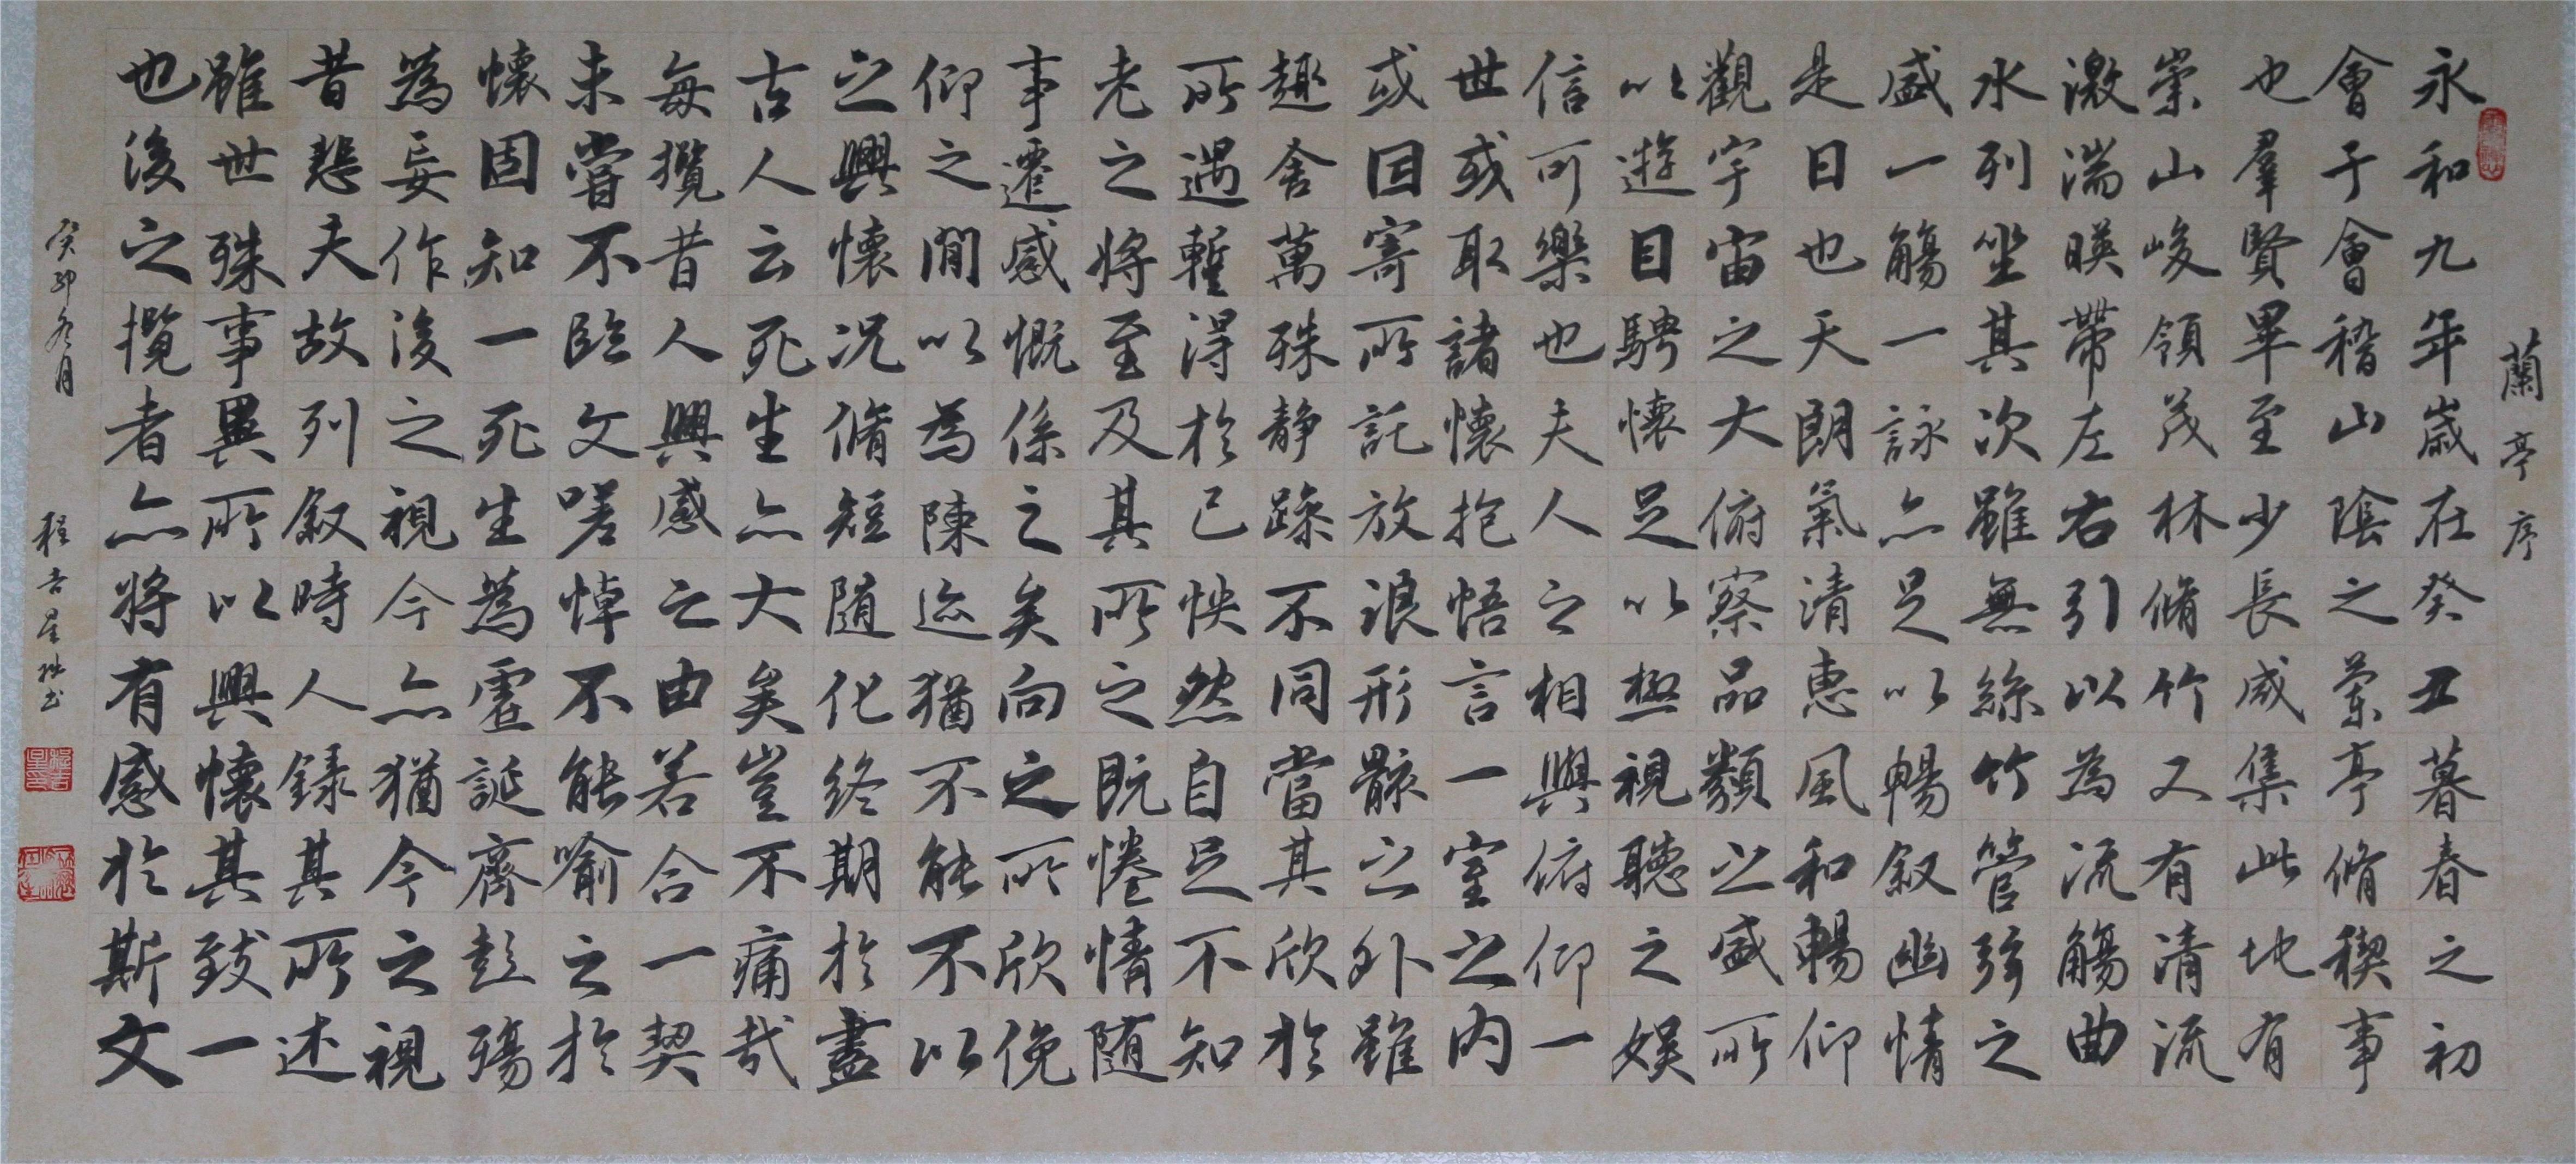 蘭亭序
永和九年歲在癸丑暮春之初
會于會稽山陰之蘭亭脩稧事
也羣賢畢至少長咸集此地有
崇山峻領茂林脩竹又有清流
激湍暎帶左右引以為流觴曲
水列坐其次雖無絲竹管弦之
盛一觴一詠亦足以暢叙幽情
是日也天朗氣清惠風和暢仰
觀宇宙之大俯察品類之盛所
以遊目騁懷足以極視聽之娛
信可樂也夫人之相與俯仰一
世或取諸懷抱悟言一室之内
或因寄所託放浪形骸之外雖
趣舍萬殊静躁不同當其欣於
所遇蹔得於己怏然自足不知
老之將至及其所之既惓情随
事遷感慨係之矣向之所欣俛
仰之閒以為陳迹猶不能不以
之興懷况脩短随化終期於盡
古人云死生亦大矣豈不痛哉
每攬昔人興感之由若合一契
未嘗不臨文嗟悼不能喻之於
懷固知一死生為虛誕齊彭殤
為妄作後之視今亦猶今之視
昔悲夫故列叙時人録其所述
雖世殊事異所以興懷其致一
也後之攬者亦將有感於斯文
癸卯冬月
程吉星书